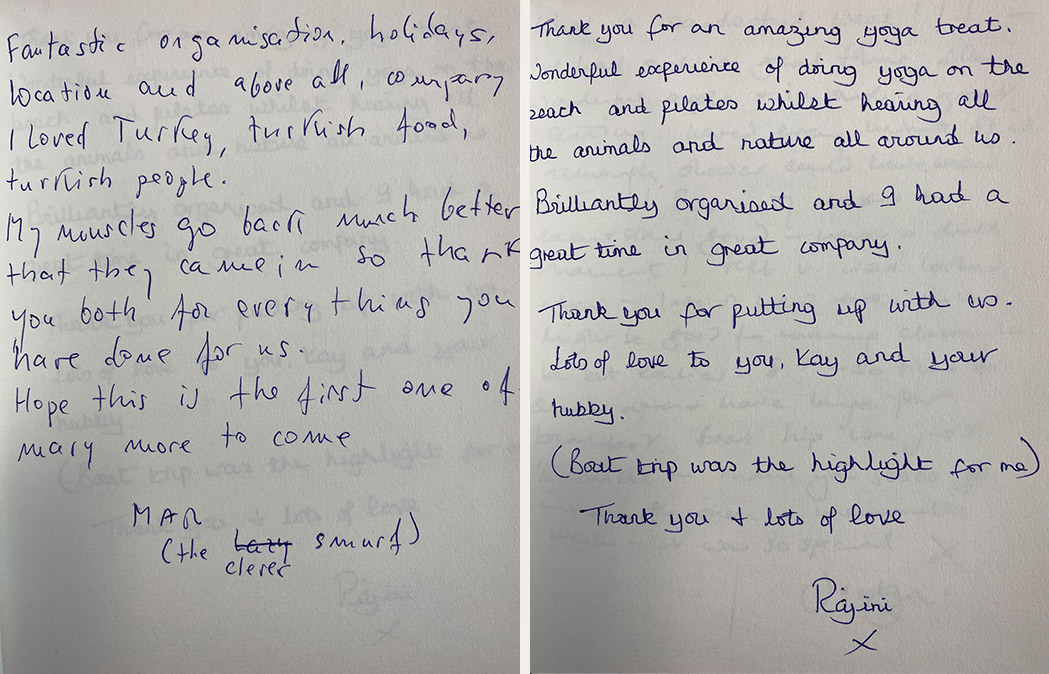 Fantastic organisation, holidays,
location and above all, company
I loved Turkey, turkish food,
turkish people.
My muscles go back much better
that they came in so thank
you both for everything you
have done for us.
Hope this is the first one of
many more to come
MAR
(the lazy smurf)
clever
Thank you for an amazing yoga treat.
Wonderful experience of doing yoga on the
beach and pilates whilst hearing all
the animals and nature all around us.
Brilliantly organised and I had a
great time in great company.
Thank you for putting up with us.
Lots of love to you, Kay and your
hubby.
(Boat trip was the highlight for me)
Thank you & lots of love
Rajini
X